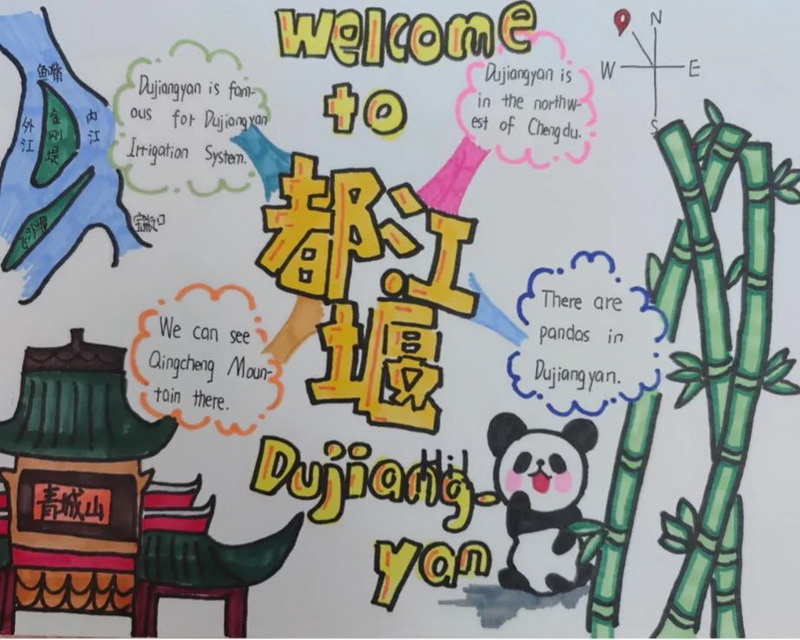 Welcome
to
都江
堰
Dujiang-
yan
Hi!
鱼嘴
外江
金刚堤
内江
宝瓶口
Dujiangyan is fam-
ous for Dujiangyan
Irrigation System.
Dujiangyan is
in the northw-
est of Chengdu.
We can see
Qingcheng Moun-
tain there.
There are
pandas in
Dujiangyan.
N
W
E
S
青城山